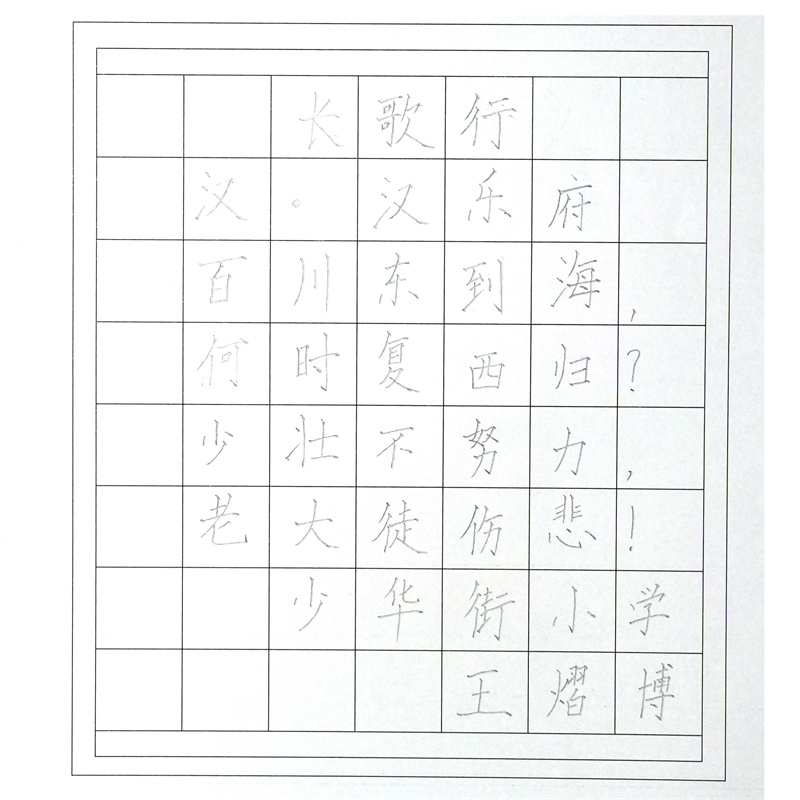 长歌行
汉。汉乐府
百川东到海，
何时复西归？
少壮不努力，
老大徒伤悲！
少华街小学
王熠博